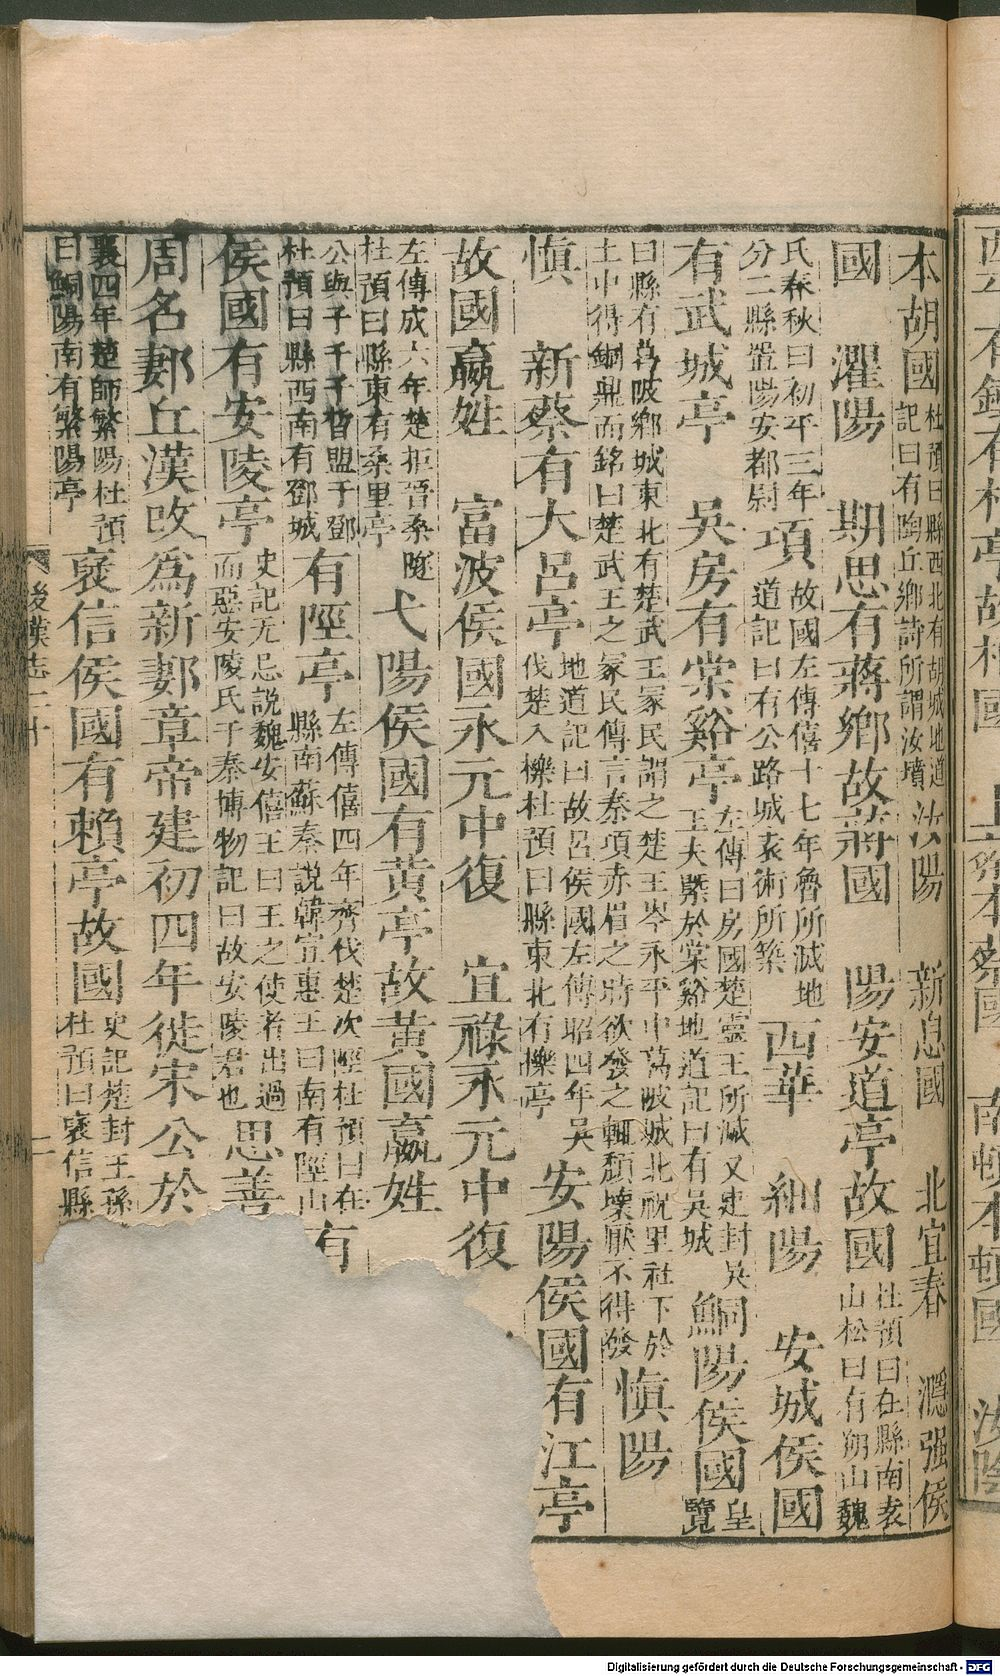 本胡國杜預曰縣西北有胡城地道記曰有陶丘鄉詩所謂汝墳汝陽　新息國　北宜春　㶏强侯
國　灈陽　期思有蔣鄉故蔣國　陽安道亭故國杜預曰在縣南袁山松曰有朔山魏
氏春秋曰初平三年分二縣置陽安都尉項故國左傳僖十七年魯所滅地道記曰有公路城袁術所築西華　細陽　安城侯國
有武城亭　吳房有棠谿亭左傳曰房國楚靈王所滅又吏封吳王夫槩於棠谿地道記曰有吳城鮦陽侯國皇覽
曰縣有葛陂鄉城東北有楚武王冢民謂之楚王岑永平中葛陂城北祝里社下於土中得銅鼎而銘曰楚武王之冢民傳言秦項赤眉之時欲發之輒頹壞厭不得發慎陽
慎　新蔡有大呂亭地道記曰故呂侯國左傳昭四年吳伐楚入櫟杜預曰縣東北有櫟亭安陽侯國有江亭
故國嬴姓　富波侯國永元中復　宜祿永元中復
左傳成六年楚拒晉桑隧杜預曰縣東有桑里亭弋陽侯國有黃亭故黃國嬴姓
公與子千千皆盟于鄧杜預曰縣西南有鄧城有陘亭左傳僖四年齊伐楚次陘杜預曰在縣南蘇秦說韓宣惠王曰南有陘山有
侯國有安陵亭史記无忌説魏安僖王曰王之使者出過而惡安陵氏于秦博物記曰故安陵君也思善
周名郪丘漢改爲新郪章帝建初四年徙宋公於
襄四年楚師繁陽杜預曰鮦陽南有繁陽亭襃信侯國有賴亭故國史記楚封王孫杜預曰襃信縣
後漢志二十
二
Digitalisierung gefördert durch die Deutsche Forschungsgemeinschaft - DFG